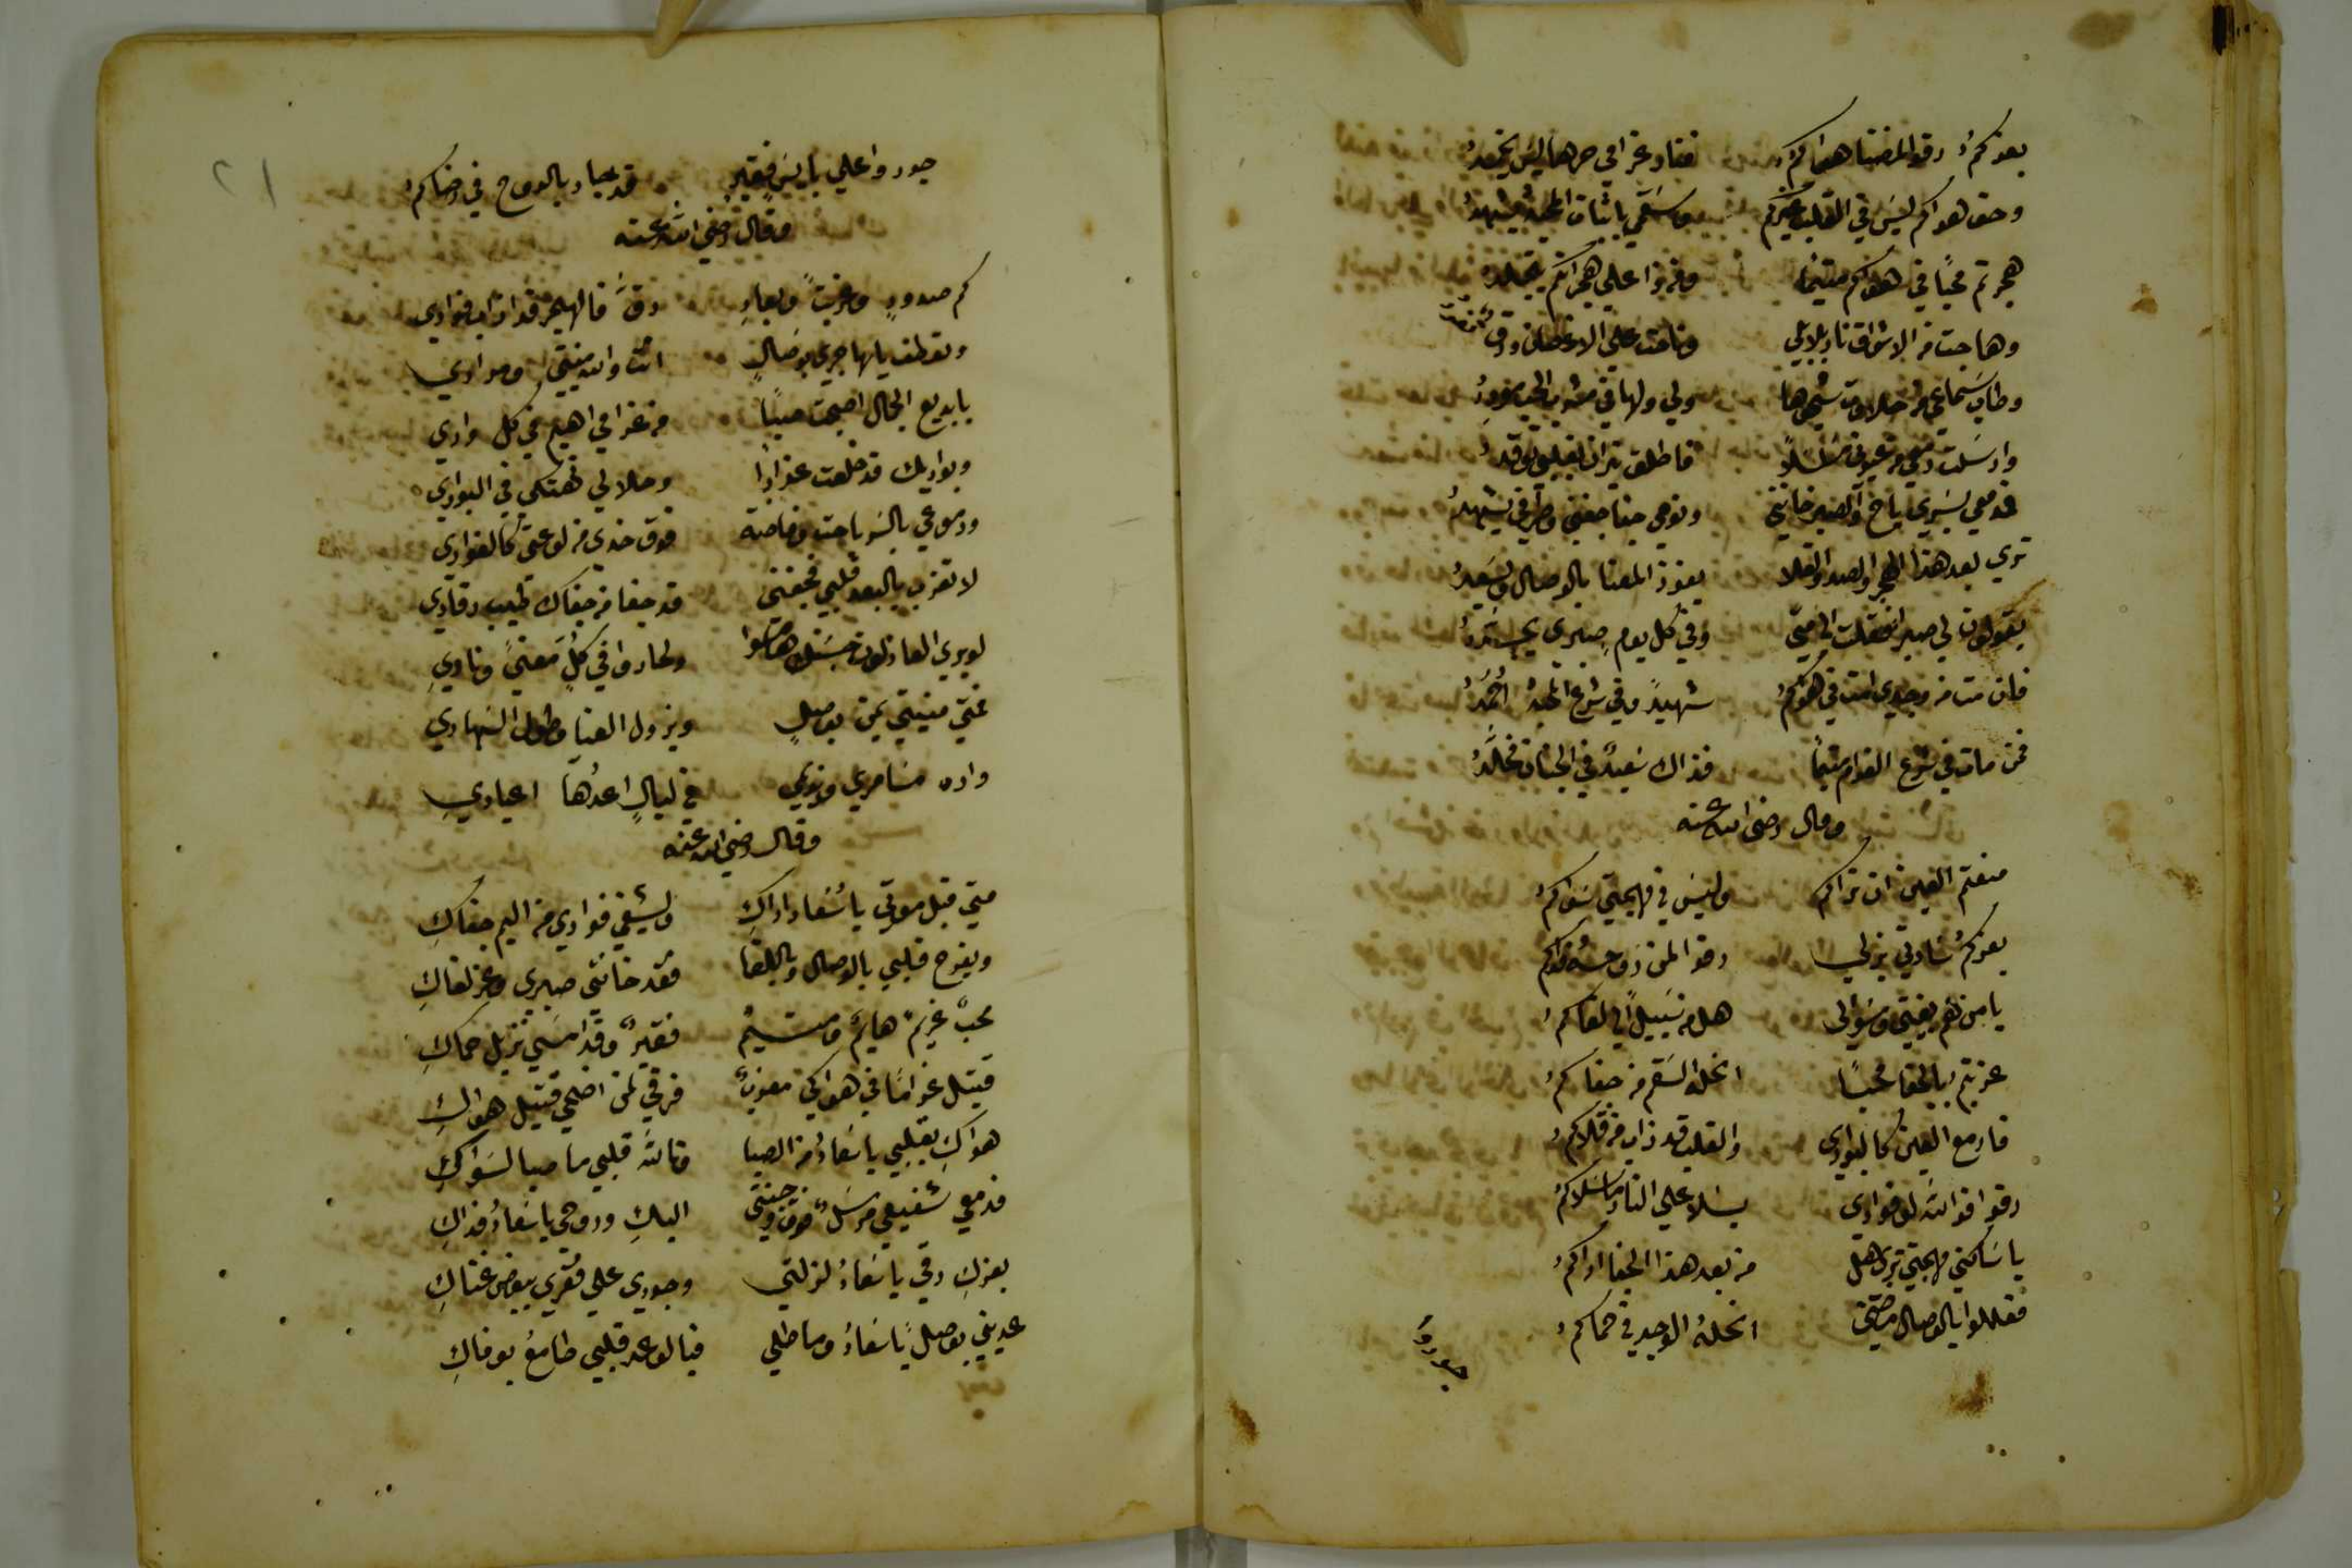 بعزكم رقوا لمضنا هواكم فنار غرامي حرها ليس يخمد
وحق هواكم ليس في القلب غيركم وسقمي باثبات المحبة يشهد
هجرتم محبا في هواكم متيما على هجرانكم يتجلد
وهاجت من الاشواق نار بلابلي وناحت على الاغصان ورق
وطاب سماعي من حلاوت شجوها ولي ولها في مشرب الحب مورد
وارسلت دمعي من عيوني فاطلق نيران بقلبي توقد
فدمعي بسري باح والصبر خانني ونومي جفا جفني وطرفي يشهد
ترى بعد هذا الهجر والصد والقلا يفوز المعنا بالوصال ويسعد
يقولون لي صبرا فقلت الى متى وفي كل يوم صبري
فان مت من وجدي امت في هواكم شهيد وفي شرع المحبة احمد
فمن مات في شرع الغرام متيما فذاك سعيد في الجنان مخلد
وقال رضي الله عنه
منعتم العين ان تراكم وليس في مهجتي سواكم
بعزكم سادتي بذلي رقوا لمن
يا من هم بغيتي وسؤالي هل من سبيل الى لقاكم
عزبتم بالجفا محبا انحله السقم من جفاكم
فادمع العين كالبوادي والقلب قد ذاب من قلاكم
رقوا فوالله لو فوادي يسلا على النار ما سلاكم
يا ساكني مهجتي ترى هل من بعد هذا الجفا اراكم
فعللوا بالوصال انحله الوجد في حماكم
جوروا
٢١
جوروا على بايس فقير قد جاد بالروح في رضاكم
وقال رضي الله عنه
كم صدود وبعاد رق فالهجر قد اذاب فوادي
وتعطف يا هاجري بوصال انت والله منيتي ومرادي
يا بديع الجمال اصبحت صبا من غرامي اهيم في كل وادي
وبواديك قد خلعت عذارا وحلا لي تهتكي في البوادي
ودموعي بالسر باحت وفاضت فوق خدي من لوعتي كالغوادي
لا تعزب بالبعد قلبي فجفني قد جفا من جفاك طيب رقادي
لو يرى العاذلون حسنك هاموا ولحاروا في كل معنى ونادي
فمتى منيتي تمن بوصل ويزول العنا وطول السهادي
واره مسامري ونديمي في ليال اعدها اعيادي
وقال رضي الله عنه
متى قبل موتي يا سعاد اراك ويشفي فوادي من اليم جفاك
ويفرح قلبي بالوصال وباللقا فقد خانني صبري وعز لقاك
محب غريم هايم ومتيم فقير وقد امسى نزيل حماك
قتيل غراما في هواكي معذب فرقي لمن اضحى قتيل هواك
هواك بقلبي يا سعاد من الصبا وتالله قلبي ما صبا لسواك
فدمعي شفيعي مرسل فوق وجنتي اليك وروحي يا سعاد فداك
بعزك رقي يا سعاد لزلتي وجودي على فقري ببعض غناك
عديني بوصل يا سعاد وماطلي فبالوعد قلبي طامع بوفاك